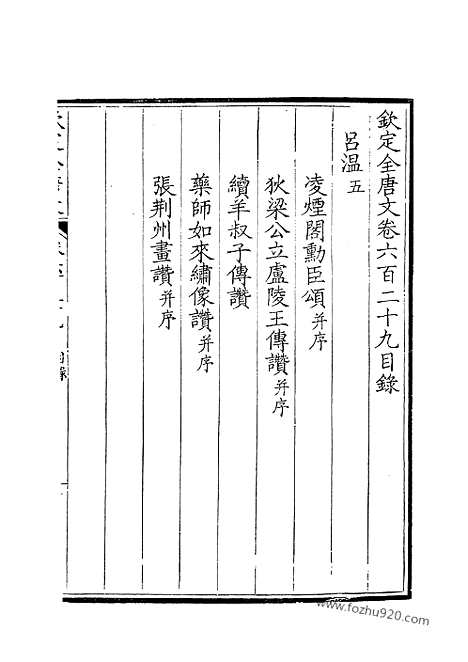 欽定全唐文卷六百二十九目錄
呂温五
凌煙閣勳臣頌并序
狄梁公立盧陵王傳讚并序
續羊叔子傳讚
藥師如來繡像讚并序
張荆州畫讚并序
www.fozhu920.com